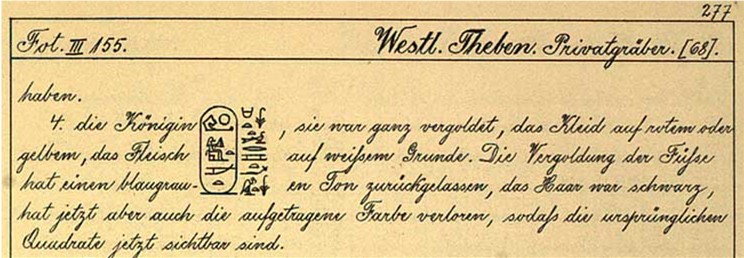 277
Fot. III 155.
Westl. Theben. Privatgräber. [68].
haben.
4. die Königin , sie war ganz vergoldet, das Kleid auf rotem oder
gelbem, das Fleisch auf weißem Grunde. Die Vergoldung der Füße
hat einen blaugrau- en Ton zurückgelassen, das Haar war schwarz,
hat jetzt aber auch die aufgetragene Farbe verloren, sodaß die ursprünglichen
Quadrate jetzt sichtbar sind.